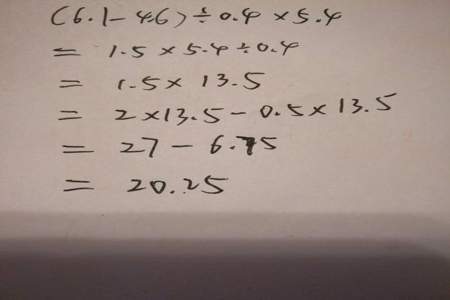 (6.1-4.6)÷0.4×5.4
= 1.5×5.4÷0.4
= 1.5×13.5
= 2×13.5-0.5×13.5
= 27-6.75
= 20.25